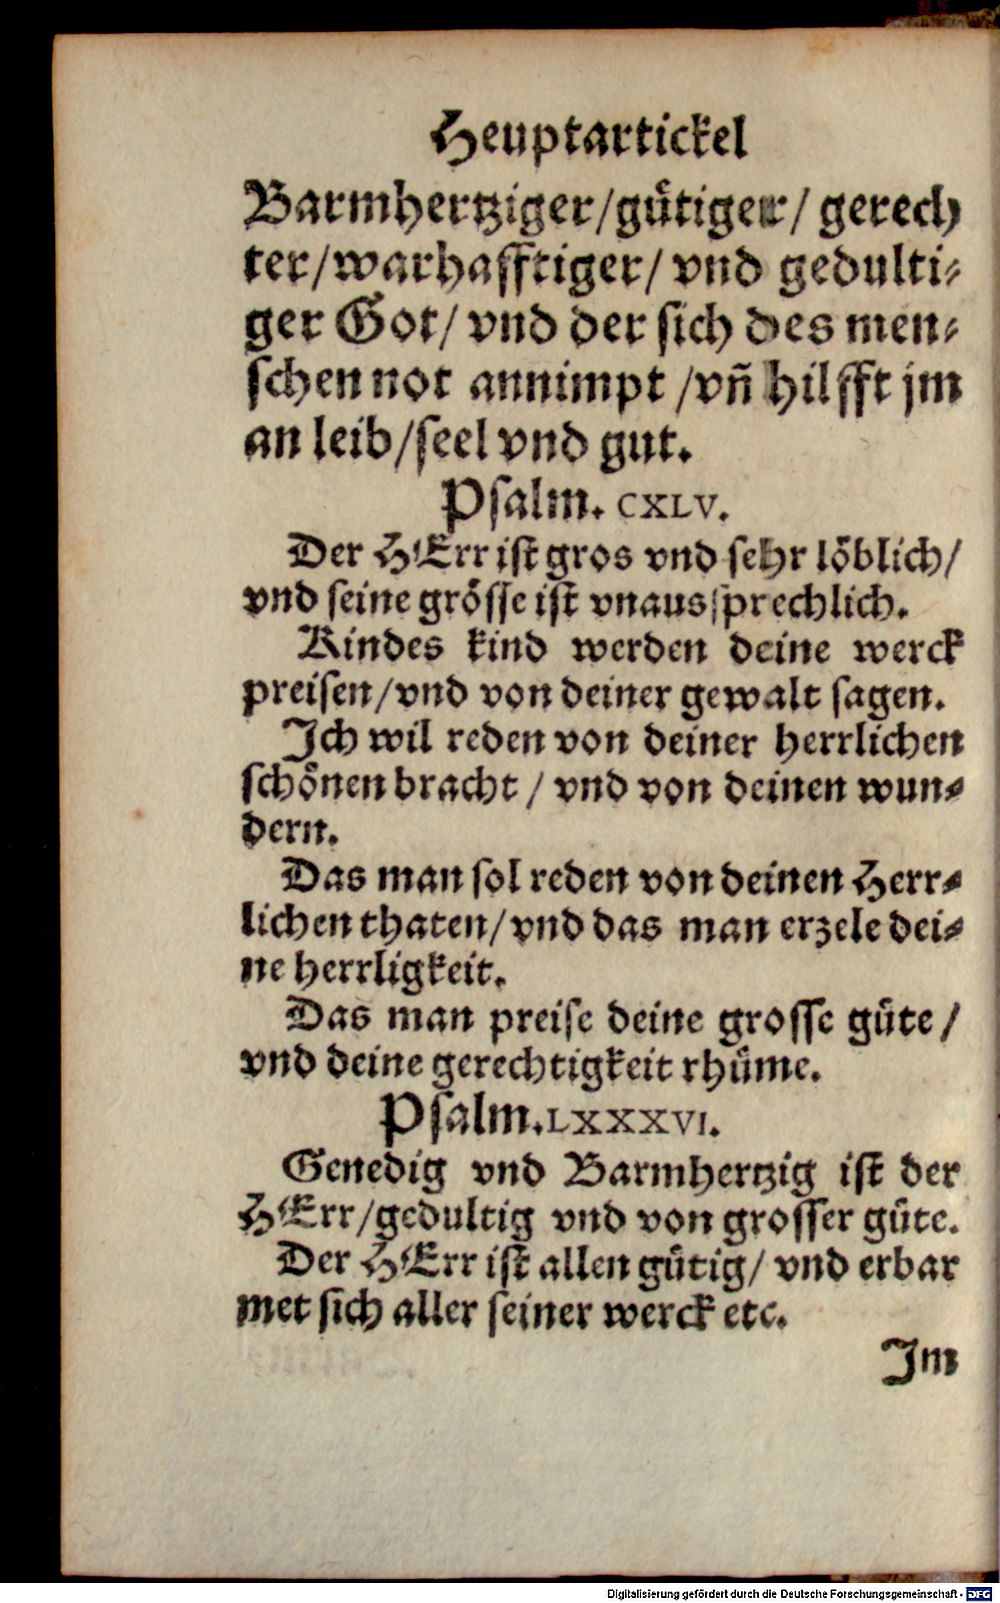 Heuptartickel
Barmhertziger/gütiger/ gerech
ter/warhafftiger/ vnd gedulti⸗
ger Got/ vnd der sich des men⸗
schen not annimpt /vñ hilfft jm
an leib/seel vnd gut.
Psalm. CXLV.
Der HErr ist gros vnd sehr löblich/
vnd seine grösse ist vnaussprechlich.
Kindes kind werden deine werck
preisen/vnd von deiner gewalt sagen.
Ich wil reden von deiner herrlichen
schönen bracht / vnd von deinen wun⸗
dern.
Das man sol reden von deinen Herr⸗
lichen thaten/ vnd das man erzele dei⸗
ne herrligkeit.
Das man preise deine grosse güte /
vnd deine gerechtigkeit rhüme.
Psalm. LXXXVI.
Genedig vnd Barmhertzig ist der
HErr/gedultig vnd von grosser güte.
Der HErr ist allen gütig/ vnd erbar
met sich aller seiner werck etc.
Im
Digitalisierung gefördert durch die Deutsche Forschungsgemeinschaft - DFG